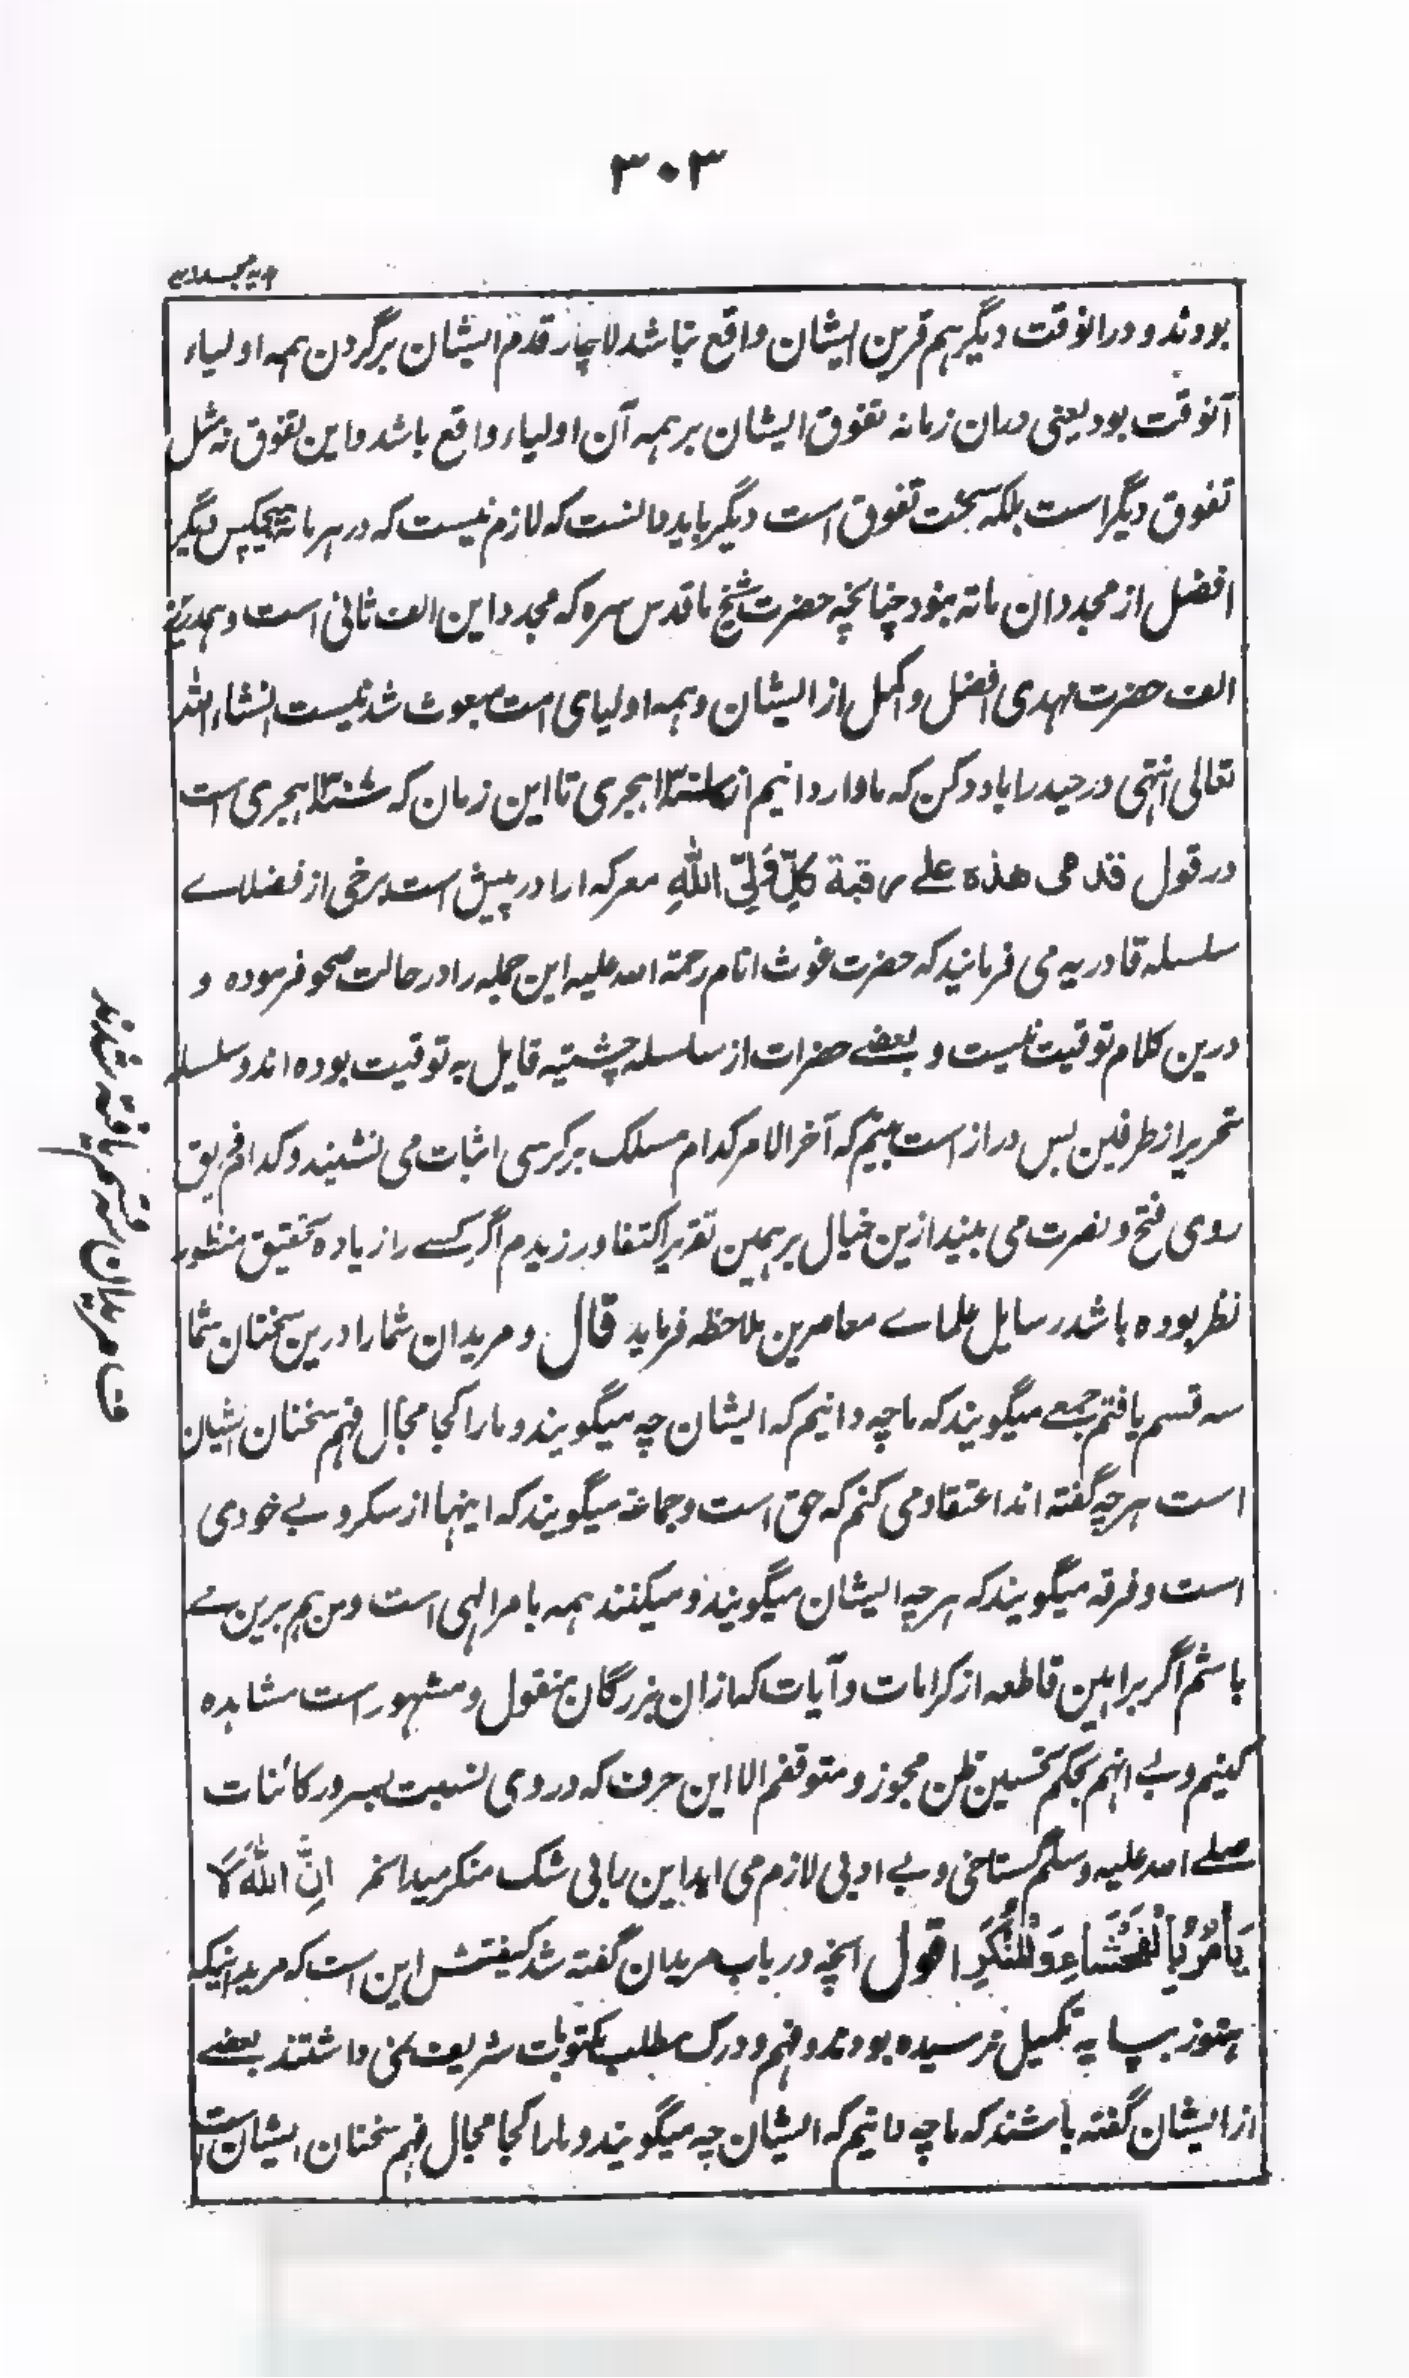 ۳۰۳
هدیه مجددیه
بودند و درانوقت دیگر هم قرین ایشان واقع نباشد لاچار قدم ایشان برگردن همه اولیاء
آنوقت بود یعنی دران زمانه تفوق ایشان بر همه آن اولیاء واقع باشد و این تفوق نه مثل
تفوق دیگر است بلکه سخت تفوق است دیگر باید دانست که لازم نیست که در هر مائة هیچکس دیگر
افضل از مجددان مائة نبود چنانچه حضرت شیخ ما قدس سره که مجدد این الف ثانی است و همدرین
الف حضرت مهدی افضل و اکمل از ایشان و همه اولیای امت مبعوث شدنیست انشاء الله
تعالی انتهی در حیدراباد دکن که ما وارد انیم از هجری تا این زمان که هجری است
در قول قدمی هذه علی رقبة کلِّ وَلِیِّ اللهِ معرکه ارا در پیش است برخی از فضلاے
سلسله قادریه می فرمایند که حضرت غوث انام رحمة الله علیه این جمله را در حالت صحو فرموده و
درین کلام توقیت نیست و بعضے حضرات از سلسله چشتیه قایل به توقیت بوده اند و سلسله
تحریر از طرفین بس دراز است بینم که آخر الامر کدام مسلک بر کرسی اثبات می نشیند و کدام فریق
روی فتح و نصرت می بیند ازین خیال بر همین تقریر اکتفا ورزیدم اگر کسے را زیاده تحقیق منظور
نظر بوده باشد رسایل علماے معاصرین ملاحظه فرماید قال و مریدان شما را درین سخنان شما
سه قسم یافتم جمعے میگویند که ما چه دانیم که ایشان چه میگویند و ما را کجا مجال فهم سخنان ایشان
است هرچه گفته اند اعتقاد می کنم که حق است و جماعة میگویند که اینها از سکر و بے خودی
است و فرقه میگویند که هرچه ایشان میگویند و میکنند همه بامر الهی است و من هم برین مے
باشم اگر براهین قاطعه از کرامات و آیات که ازان بزرگان منقول و مشهور است مشاهده
کنیم و بے انهم بحکم تحسین ظن مجوز و متوقفم الا این حرف که در وی نسبت بسرور کائنات
صلے الله علیه وسلم گستاخی و بے ادبی لازم می اید این را بی شک منکر میدانم اِنَّ اللهَ لَا
یَأْمُرُ بِالْفَحْشَاءِ وَالْمُنْکَرِ اقول انچه در باب مریدان گفته شد کیفیتش این است که مریدانیکه
هنوز بپایه تکمیل نرسیده بودند و فهم و درک مطلب مکتوبات شریف نمی داشتند بعضے
از ایشان گفته باشند که ما چه دانیم که ایشان چه میگویند و ما را کجا مجال فهم سخنان ایشان است
ف مریدان سه قسم یافته شدند